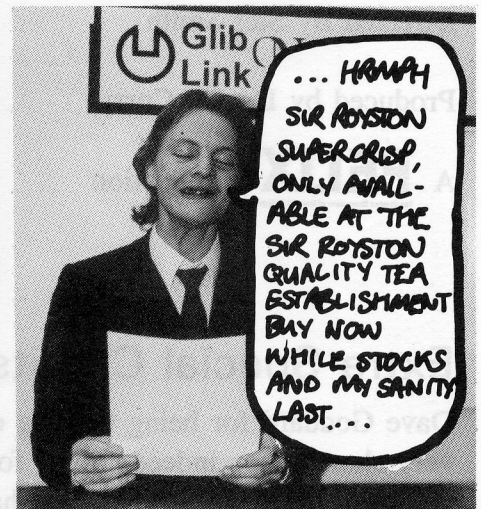 Glib
Link
... HRMPH
SIR ROYSTON
SUPERCRISP,
ONLY AVAIL-
ABLE AT THE
SIR ROYSTON
QUALITY TEA
ESTABLISHMENT
BUY NOW
WHILE STOCKS
AND MY SANITY
LAST....